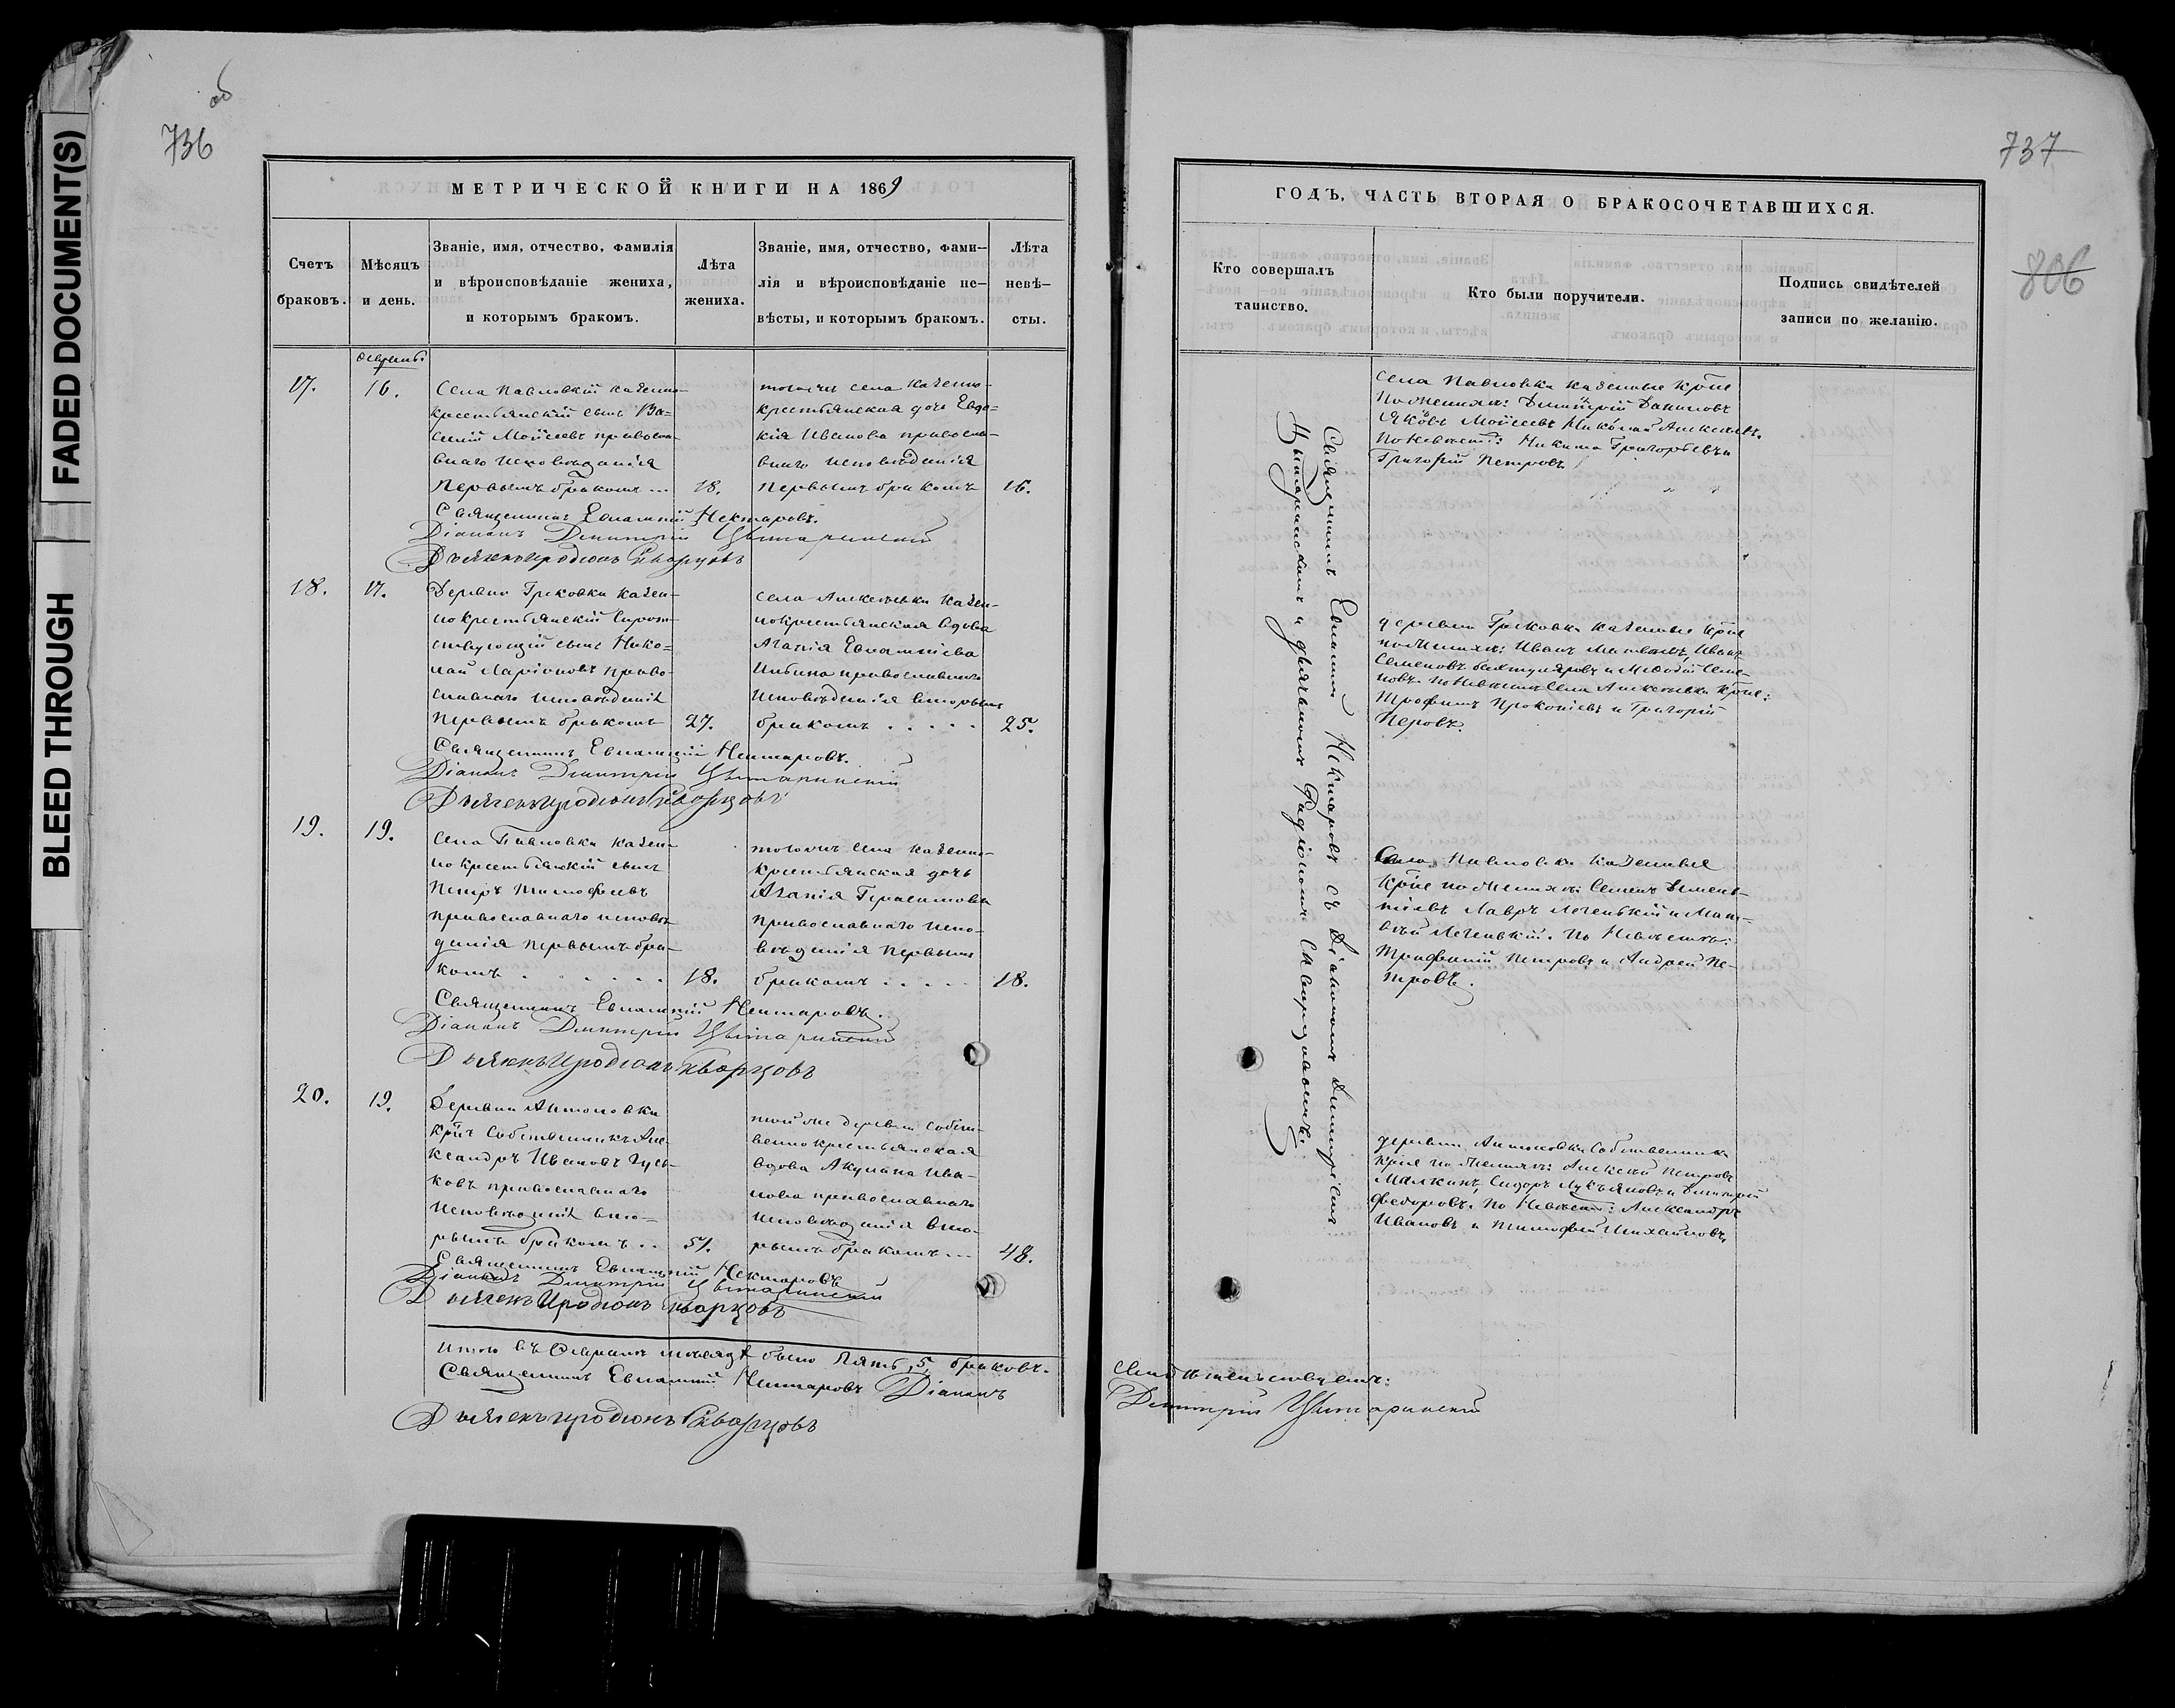 FADED DOCUMENT(S)
BLEED THROUGH
об
736
МЕТРИЧЕСКОЙ КНИГИ НА 1869
Счетъ
браковъ.
Мѣсяцъ
и день.
Званіе, имя, отчество, фамилія
и вѣроисповѣданіе жениха,
и которымъ бракомъ.
Лѣта
жениха.
Званіе, имя, отчество, фами-
лія и вѣроисповѣданіе не-
вѣсты, и которымъ бракомъ.
Лѣта
невѣ-
сты.
17.
16.
Села Павловки казенно-
крестьянскій сынъ Ва-
силій Моисеевъ правосла-
внаго исповѣданія
первымъ бракомъ ...
18.
тогожъ села казенно-
крестьянская дочь Евдо-
кія Иванова правосла-
внаго исповѣданія
первымъ бракомъ
16.
Священникъ Евлампій Нектаровъ.
Діаконъ Димитрій
Дьячекъ Иродіонъ Скворцовъ
18.
17.
Деревни Грековки казен-
но крестьянскій
сынъ Нико-
лай Ларіоновъ право-
славнаго исповѣданія
первымъ бракомъ
27.
села Алексѣевки казен-
нокрестьянская вдова
Агапія Евлампіева
православнаго
исповѣданія вторымъ
бракомъ . . . . .
25.
Священникъ Евлампій Нектаровъ.
Діаконъ Димитрій
Дьячекъ Иродіонъ Скворцовъ
19.
19.
Села Павловки казен-
но крестьянскій сынъ
Петръ Тимофеевъ
православнаго исповѣ-
данія первымъ бра-
комъ . . . . . .
18.
тогожъ села казенно-
крестьянская дочь
Агапія Герасимова
православнаго испо-
вѣданія первымъ
бракомъ . . . . .
18.
Священникъ Евлампій Нектаровъ.
Діаконъ Димитрій
Дьячекъ Иродіонъ Скворцовъ
20.
19.
Деревни Антоновки
крͣнъ собственникъ Але-
ксандръ Ивановъ Гусь-
ковъ православнаго
исповѣданія вто-
рымъ бракомъ ..
51.
той же деревни собст-
веннокрестьянская
вдова Акулина Ива-
нова православнаго
исповѣданія вто-
рымъ бракомъ ...
48.
Священникъ Евлампій Нектаровъ
Діаконъ Димитрій
Дьячекъ Иродіонъ Скворцовъ
Итого въ Февралѣ мѣсяцѣ было пять, 5, браковъ.
Священникъ Евлампій Нектаровъ Діаконъ
Дьячекъ Иродіонъ Скворцовъ
737
806
ГОДЪ, ЧАСТЬ ВТОРАЯ О БРАКОСОЧЕТАВШИХСЯ.
Кто совершалъ
таинство.
Кто были поручители.
Подпись свидѣтелей
записи по желанію.
Священникъ Евлампій Нектаровъ съ Діакономъ Димитріемъ
и дьячкомъ Скворцовымъ.
села Павловки казенные крͣне
по женихѣ: Димитрій Даниловъ
Яковъ Моисеевъ Николай Алексѣевъ.
по невѣстѣ: Никита Григорьевъ и
Григорій Петровъ
деревни Грековки казенные крͣне
по женихѣ: Иванъ Матвѣевъ, Иванъ
Семеновъ и Мефодій Семе-
новъ по невѣстѣ села Алексѣевки крͣне:
Трофимъ Прокопіевъ и Григорій
Села Павловки казенные
крͣне по женихѣ: Семенъ Демен-
тіевъ Лавръ Легенькій и Мат-
вѣй Легенькій. по невѣстѣ:
Трифоній Петровъ и Андрей Пе-
тровъ.
деревни Антоновки собственники
крͣне по женихѣ: Алексѣй Петровъ
Малкинъ, Сидоръ Лукьяновъ и Димитрій
Федоровъ. по невѣстѣ: Александръ
Ивановъ и Тимофей Михайловъ.
свидѣтельствуемъ:
Димитрій